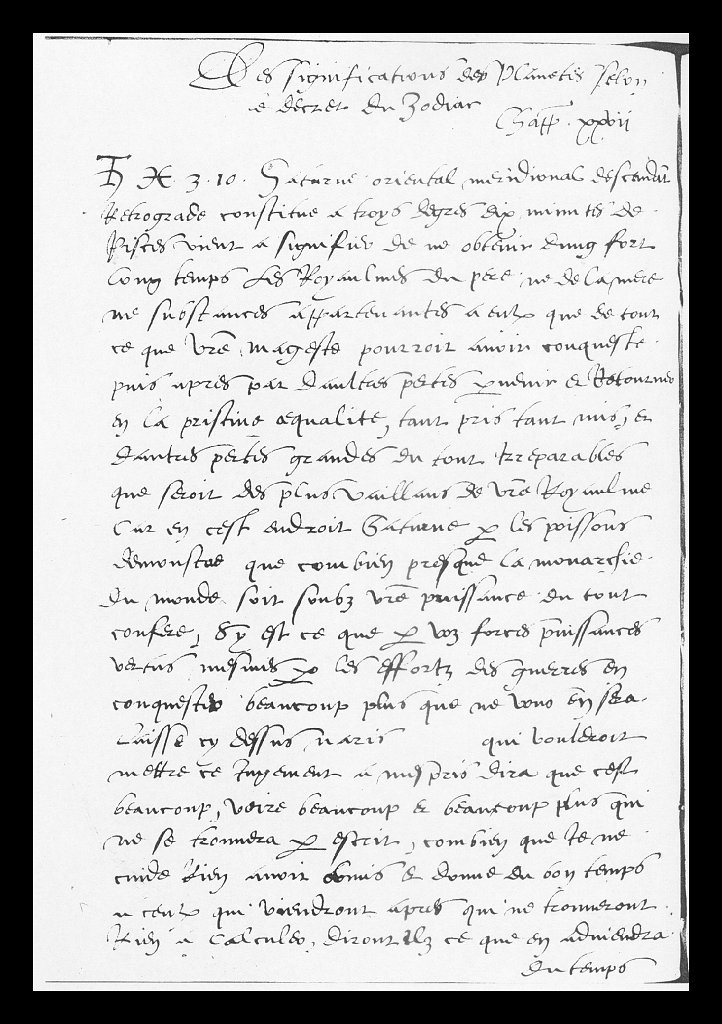 Des significations des Planetes selon
le decret du Zodiac
Chap. xxvii
♄ ♓ 3. 10. Saturne oriental meridional descendant
Retrograde constitue a troys degres dix minutes de
Pisces vient a signifier de ne obtenir dung fort
long temps les Royaulmes du pere ne de la mere
ne substances appartenantes a eulx que de tout
ce que vre mageste pourroit avoir conqueste
puis apres par daultres pertes pvenir et Retourner
en la pristine equalite, tant pris tant mis, et
dautres pertes grandes du tout Irreparables
que seroit des plus vaillans de vre Royaulme
Car en cest endroit Saturne p les poissons
demonstre que combien presque la monarchie
du monde soit soubz vre puissance du tout
confere, Sy est ce que p voz forces puissances
vertus mesmes p les effortz des guerres en
conquester beaucoup plus que ne vous en sera
laisse cy dessus qui vouldroit
mettre ce Jugement a mespris dira que cest
beaucoup, voire beaucoup et beaucoup plus qui
ne se trouvera p escrit, combien que Je ne
cuide Rien avoir obmis et donne du bon temps
a ceulx qui viendront apres qui ne trouveront
Rien a Calculer, diront Ilz ce que en adviendra
du temps